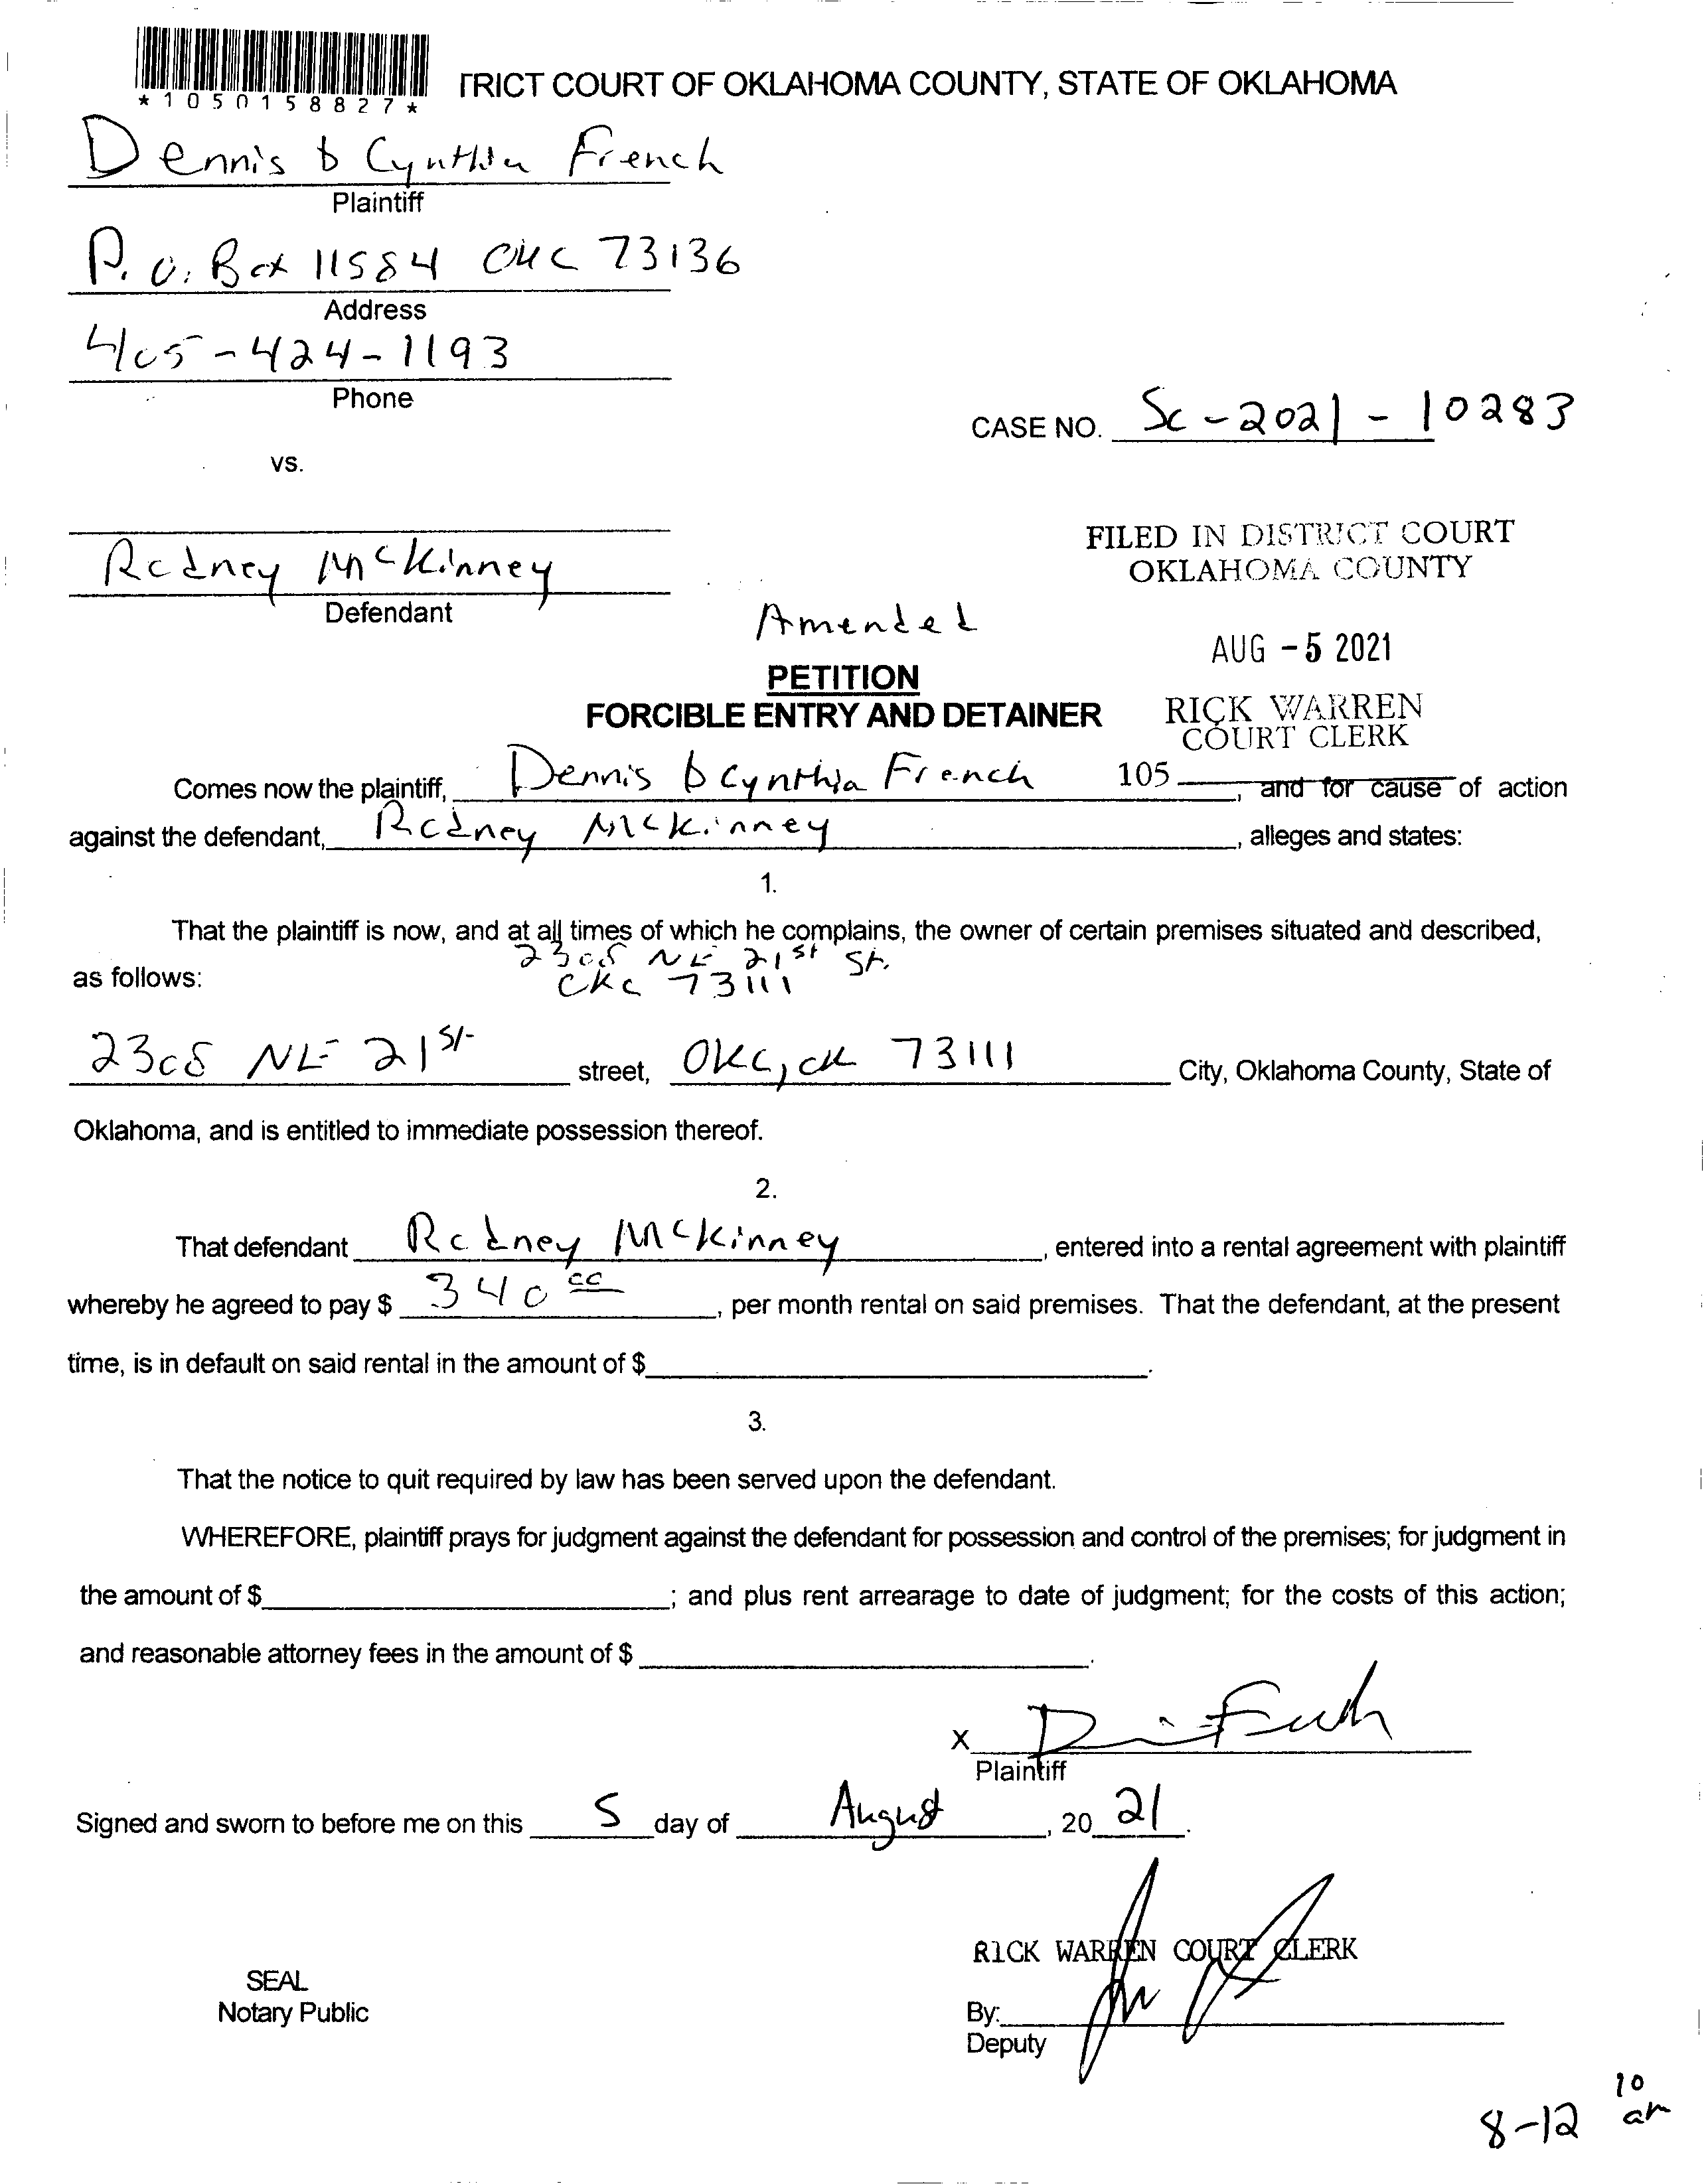 *1050158827*
TRICT COURT OF OKLAHOMA COUNTY, STATE OF OKLAHOMA
Dennis & Cynthia French
Plaintiff
P.O. Box 11584 OKC 73136
Address
405-424-1193
Phone
CASE NO. SC-2021-10283
vs.
Rodney McKinney
Defendant
FILED IN DISTRICT COURT
OKLAHOMA COUNTY
Amended
AUG -5 2021
PETITION
FORCIBLE ENTRY AND DETAINER
RICK WARREN
COURT CLERK
105
Comes now the plaintiff, Dennis & Cynthia French, and for cause of action
against the defendant, Rodney McKinney, alleges and states:
1.
That the plaintiff is now, and at all times of which he complains, the owner of certain premises situated and described,
2308 NE 21st St.
as follows: OKC 73111
2308 NE 21st street, OKC, OK 73111 City, Oklahoma County, State of
Oklahoma, and is entitled to immediate possession thereof.
2.
That defendant Rodney McKinney, entered into a rental agreement with plaintiff
whereby he agreed to pay $ 340 00, per month rental on said premises. That the defendant, at the present
time, is in default on said rental in the amount of $ .
3.
That the notice to quit required by law has been served upon the defendant.
WHEREFORE, plaintiff prays for judgment against the defendant for possession and control of the premises; for judgment in
the amount of $ ; and plus rent arrearage to date of judgment; for the costs of this action;
and reasonable attorney fees in the amount of $ .
X
Plaintiff
Signed and sworn to before me on this 5 day of August, 20 21.
RICK WARREN COURT CLERK
SEAL
Notary Public
By:
Deputy
8-12 10 am